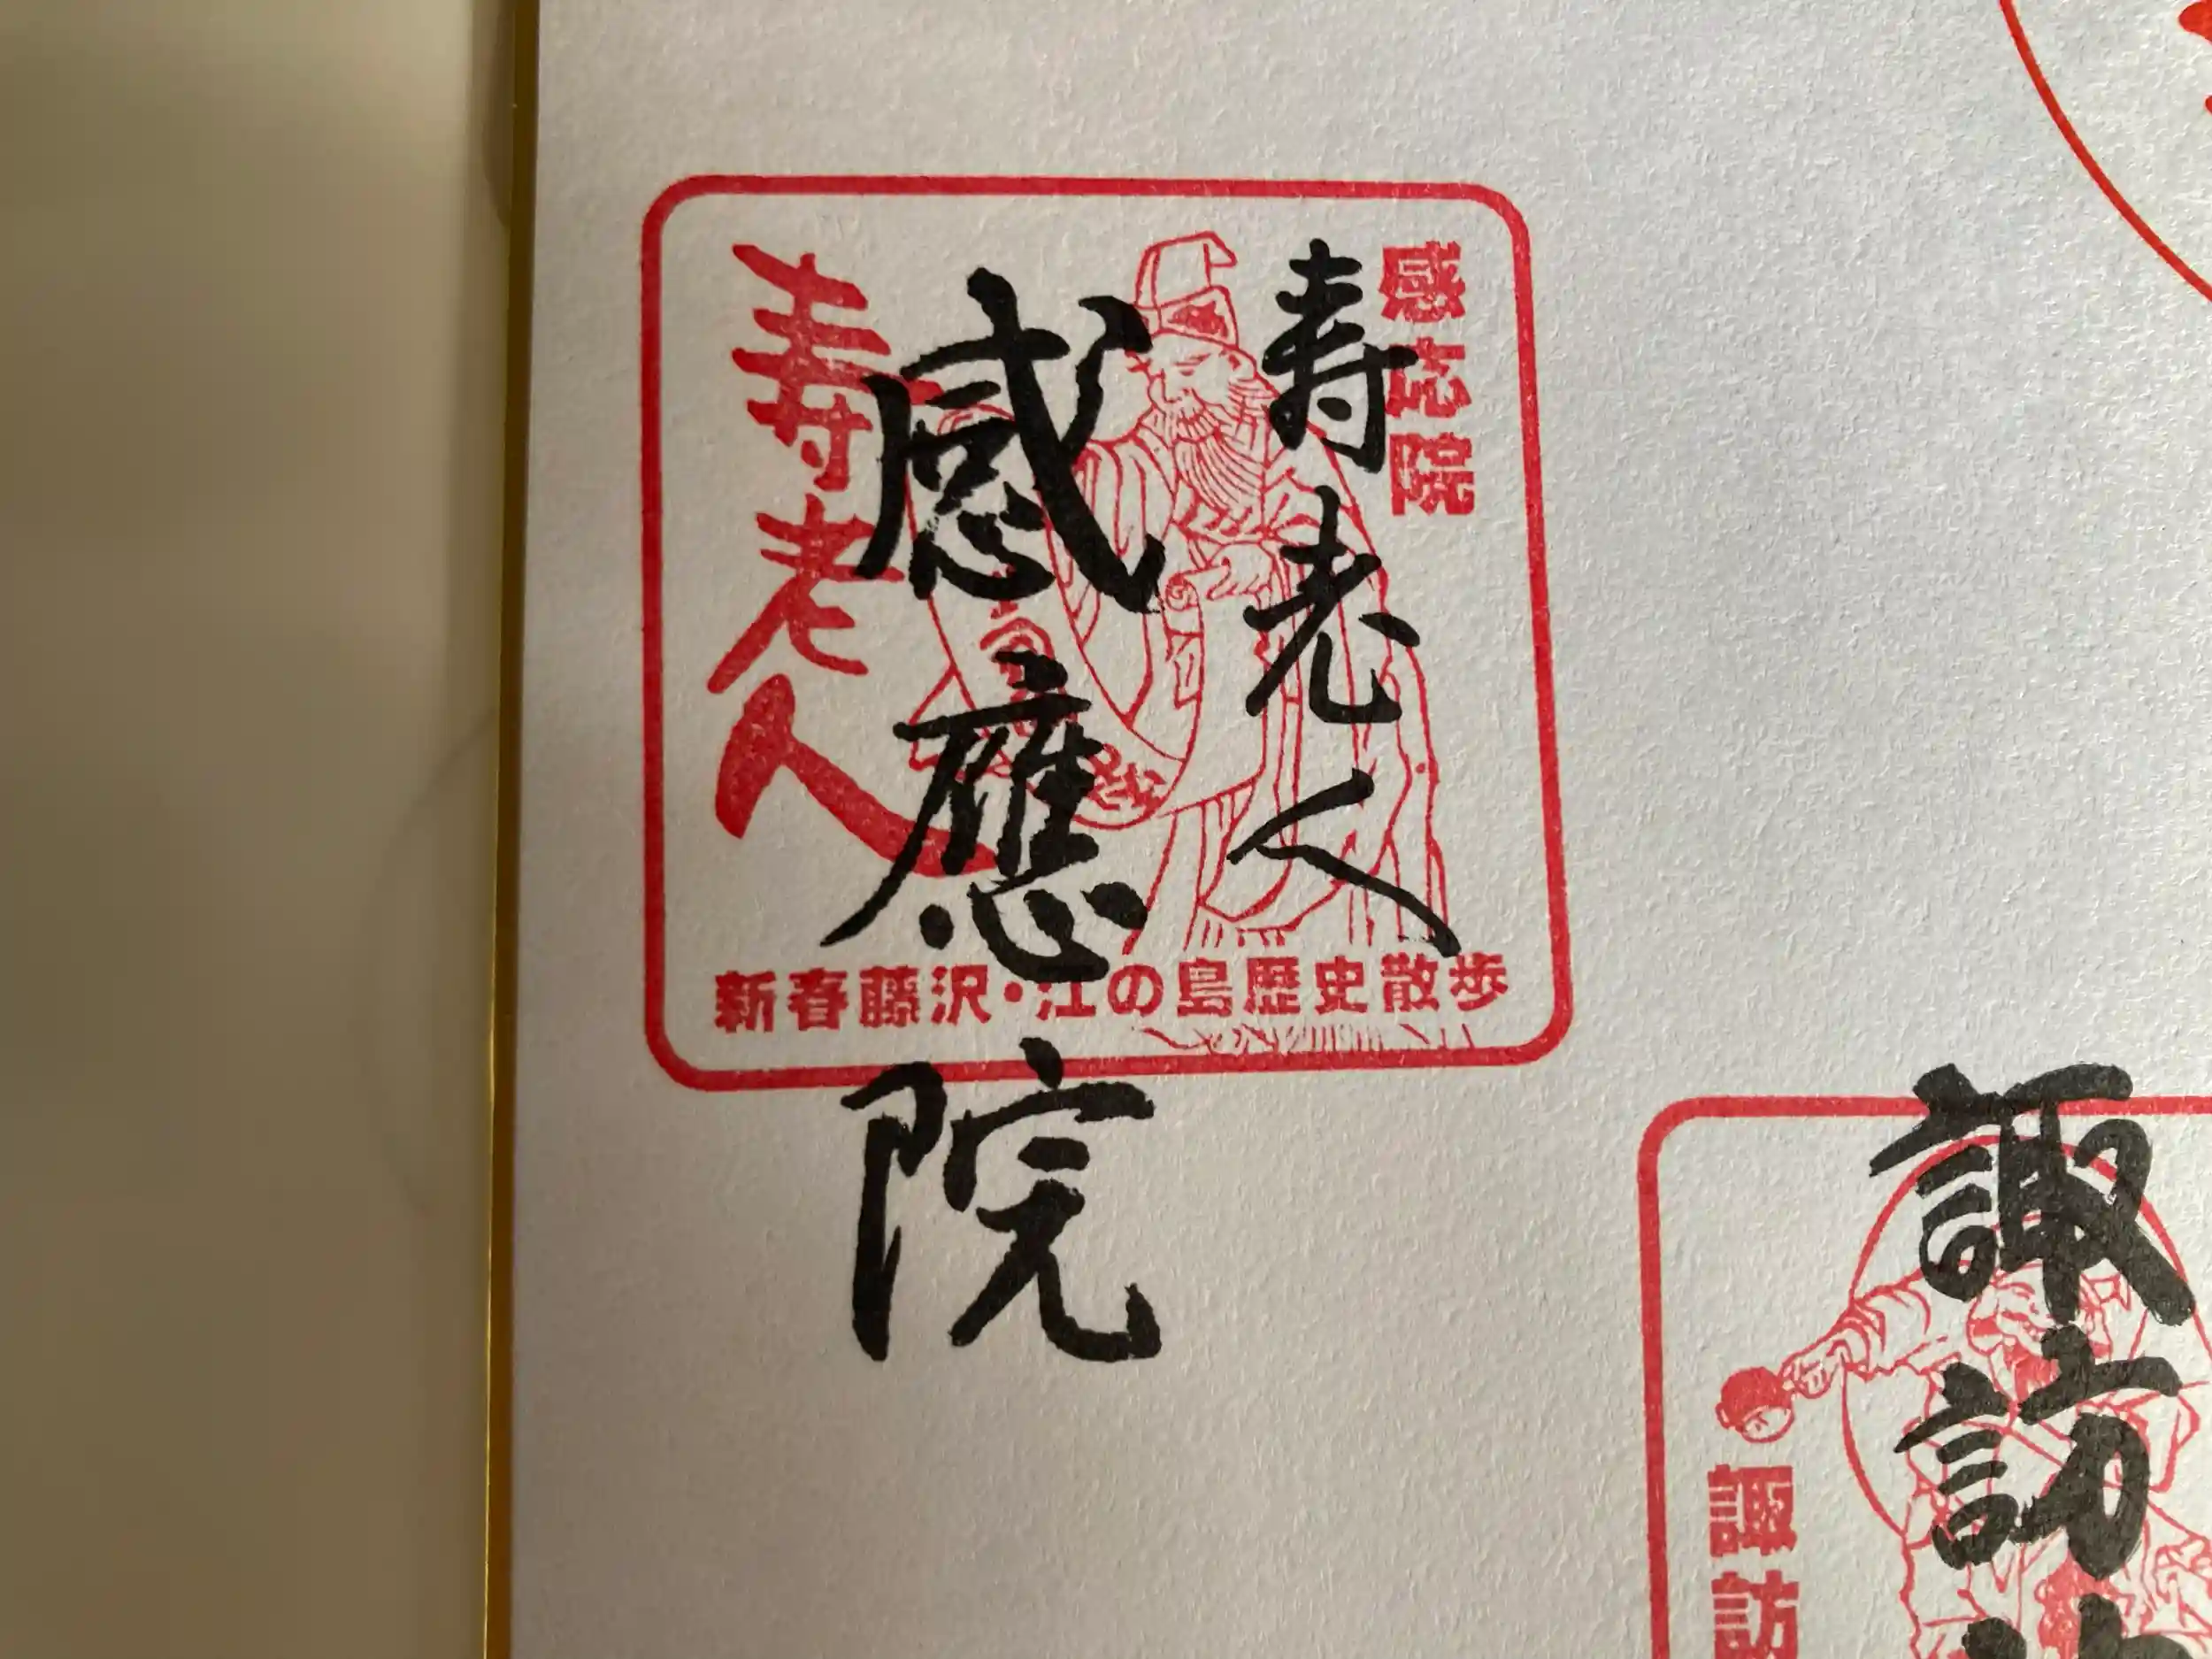 感応院
寿老人
感應院
寿老人
新春藤沢・江の島歴史散歩
諏訪
諏訪